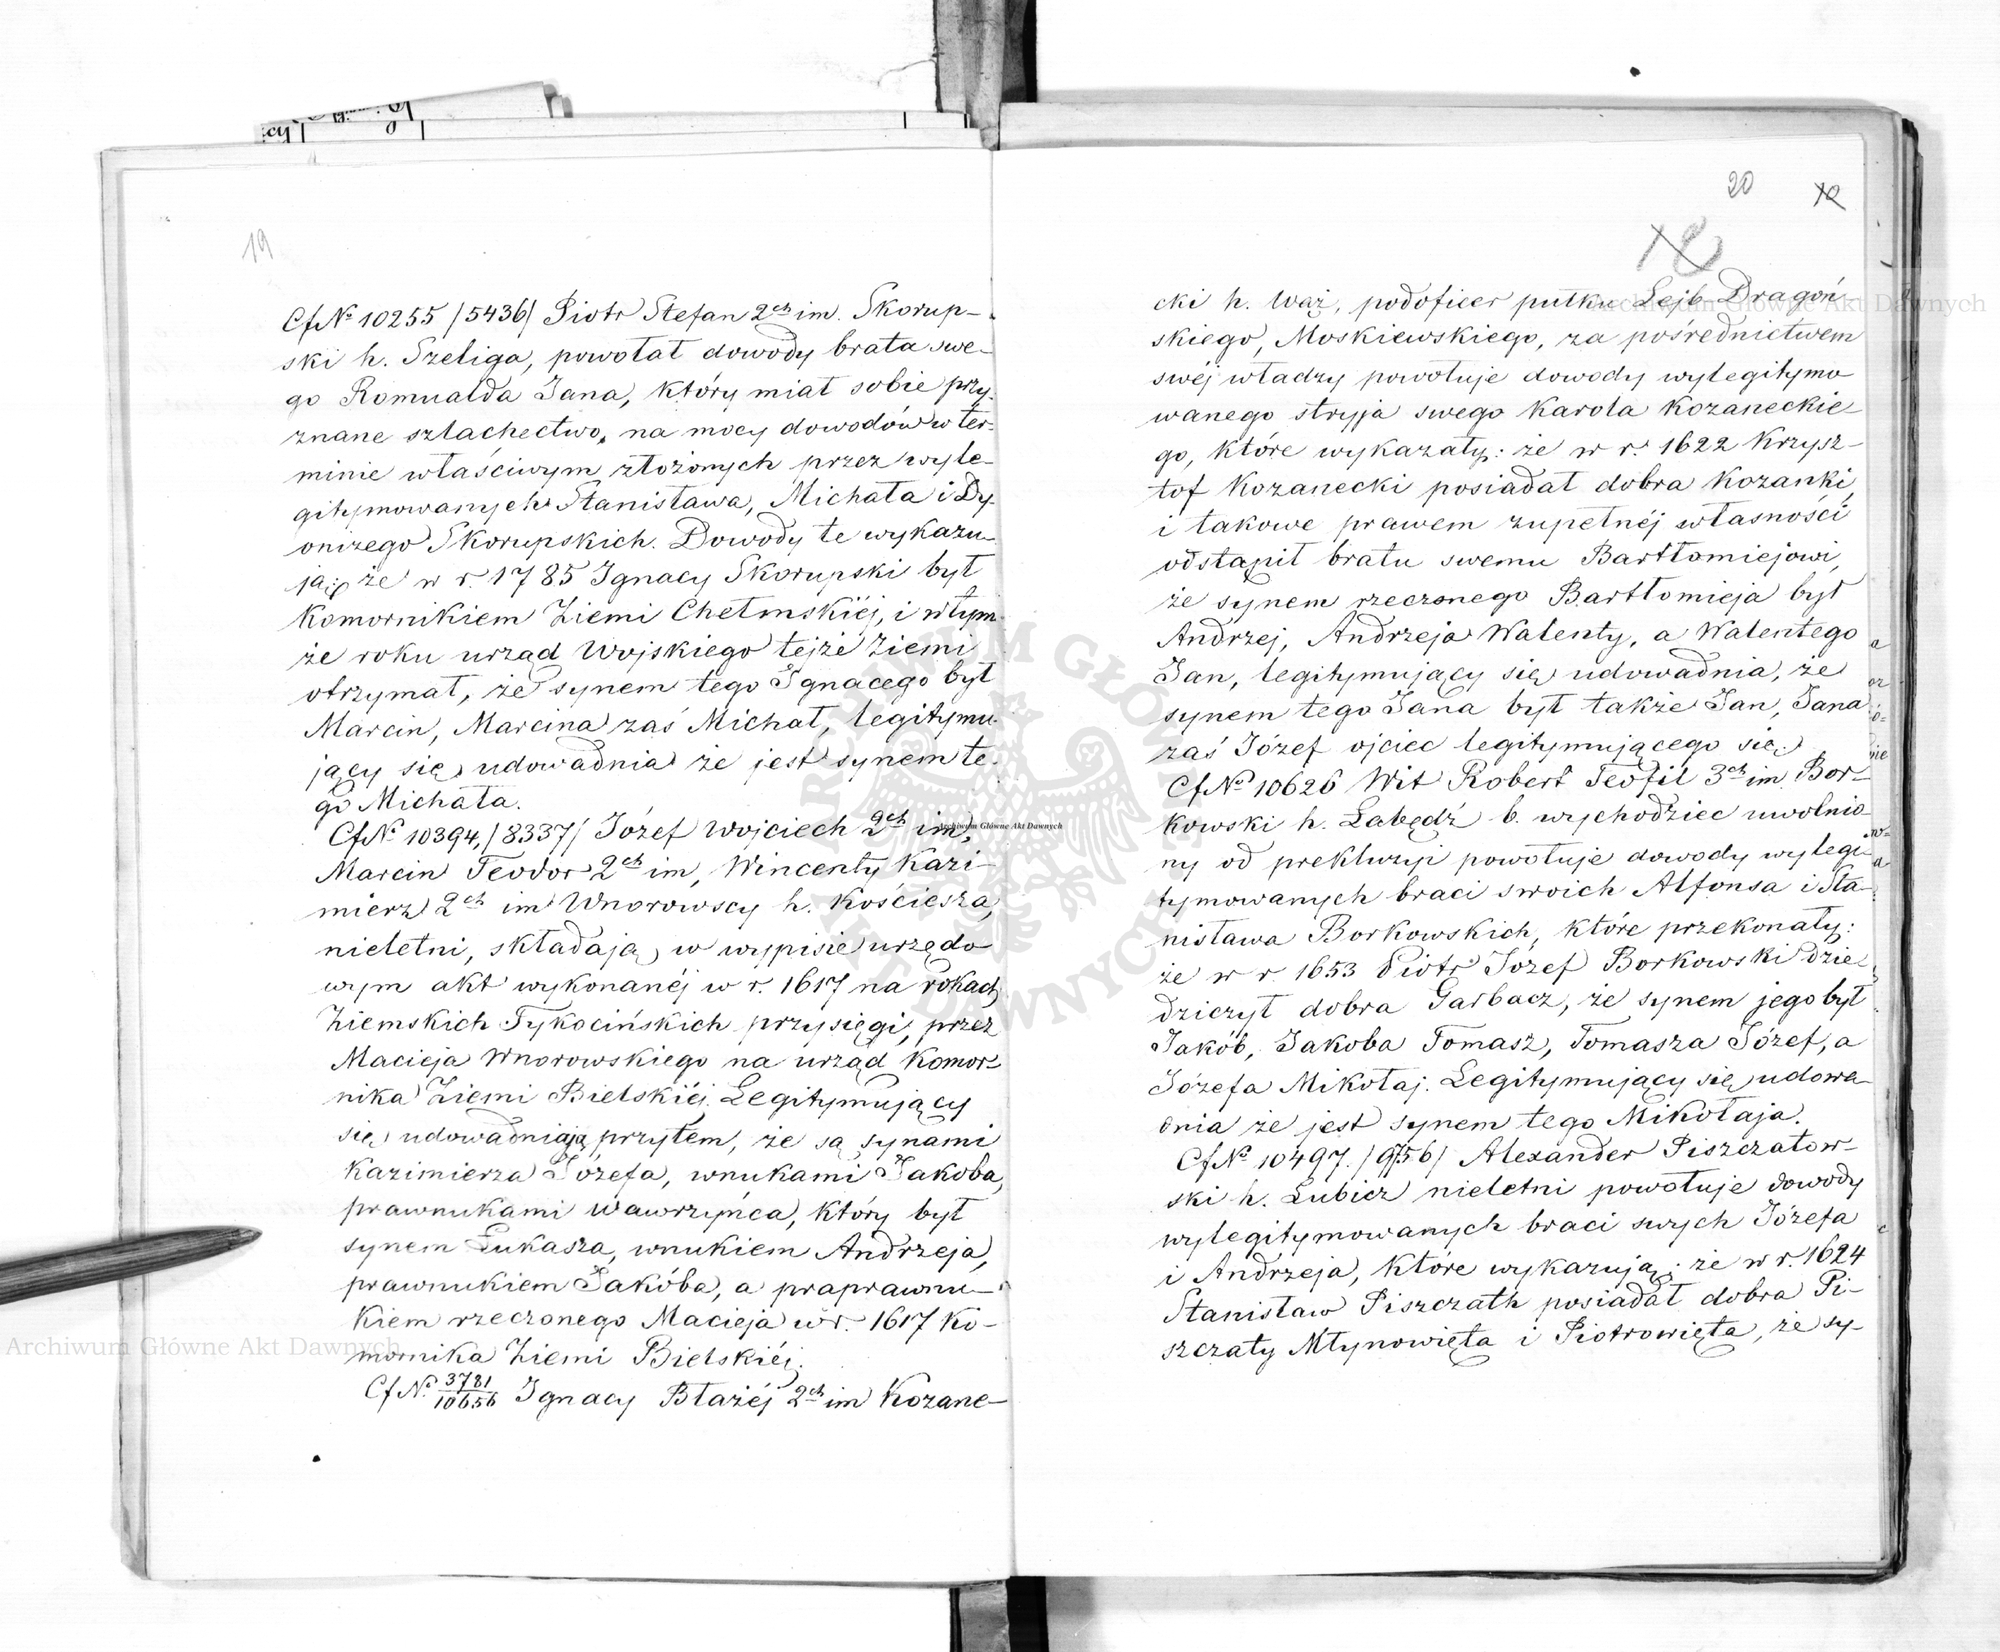 19
Cf № 10255 /5436/ Piotr Stefan 2ch im. Skorup-
ski h. Szeliga, powołał dowody brata swe-
go Romualda Jana, który miał sobie przy-
znane szlachectwo, na mocy dowodów w ter-
minie właściwym złożonych przez wyle-
gitymowanych Stanisława, Michała i Dy-
onizego Skorupskich. Dowody te wykazu-
ją: że w r. 1785 Ignacy Skorupski był
Komornikiem Ziemi Chełmskiéj, i w tym-
że roku urząd Wojskiego tejże Ziemi
otrzymał, że synem tego Ignacego był
Marcin, Marcina zaś Michał, legitymu-
jący się udowadnia że jest synem te-
go Michała.
Cf № 10394, /8337/ Józef Wojciech 2ch im,
Marcin Teodor 2ch im, Wincenty Kazi-
mierz 2ch im Wnorowscy h. Kościesza,
nieletni, składają w wypisie urzędo
wym akt wykonanéj w r. 1617 na rokach
Ziemskich Tykocińskich przysięgi, przez
Macieja Wnorowskiego na urząd Komor-
nika Ziemi Bielskiéj. Legitymujący
się udowadniają przytem, że są synami
Kazimierza Józefa, wnukami Jakóba,
prawnukami Wawrzyńca, który był
synem Łukasza, wnukiem Andrzeja,
prawnukiem Jakóba, a praprawnu-
kiem rzeczonego Macieja w r. 1617 Ko-
mornika Ziemi Bielskiéj.
Cf №. 3781/10656 Ignacy Błażéj 2ch im Kozane-
20
cki h. Wąż, podoficer pułku Lejb-Dragoń-
skiego, Moskiewskiego, za pośrednictwem
swéj władzy powołuje dowody wylegitymo
wanego stryja swego Karola Kozaneckie-
go, które wykazały: że w r. 1622 Krzysz-
tof Kozanecki posiadał dobra Kozanki,
i takowe prawem zupełnéj własności
odstąpił bratu swemu Bartłomiejowi,
że synem rzeczonego Bartłomieja był
Andrzej, Andrzeja Walenty, a Walentego
Jan, legitymujący się udowadnia, że
synem tego Jana był także Jan, Jana
zaś Józef ojciec legitymującego się.
Cf № 10626 Wit Robert Teofil 3ch im. Bor-
kowski h. Łabędź b. wychodziec uwolnio-
ny od prekluzyi powołuje dowody wylegi-
tymowanych braci swoich Alfonsa i Sta-
nisława Borkowskich, które przekonały:
że w r. 1653 Piotr Józef Borkowski dzie-
dziczył dobra Garbacz, że synem jego był
Jakób, Jakóba Tomasz, Tomasza Józef, a
Józefa Mikołaj. Legitymujący się udowa-
dnia że jest synem tego Mikołaja.
Cf № 10497. /9756/ Alexander Piszczatow-
ski h. Lubicz nieletni powołuje dowody
wylegitymowanych braci swych Józefa
i Andrzeja, które wykazują: że w r. 1624
Stanisław Piszczath posiadał dobra Pi-
szczaty Młynowięta i Piotrowięta, że sy-
Archiwum Główne Akt Dawnych
Archiwum Główne Akt Dawnych
Archiwum Główne Akt Dawnych
ARCHIWUM GŁÓWNE AKT DAWNYCH